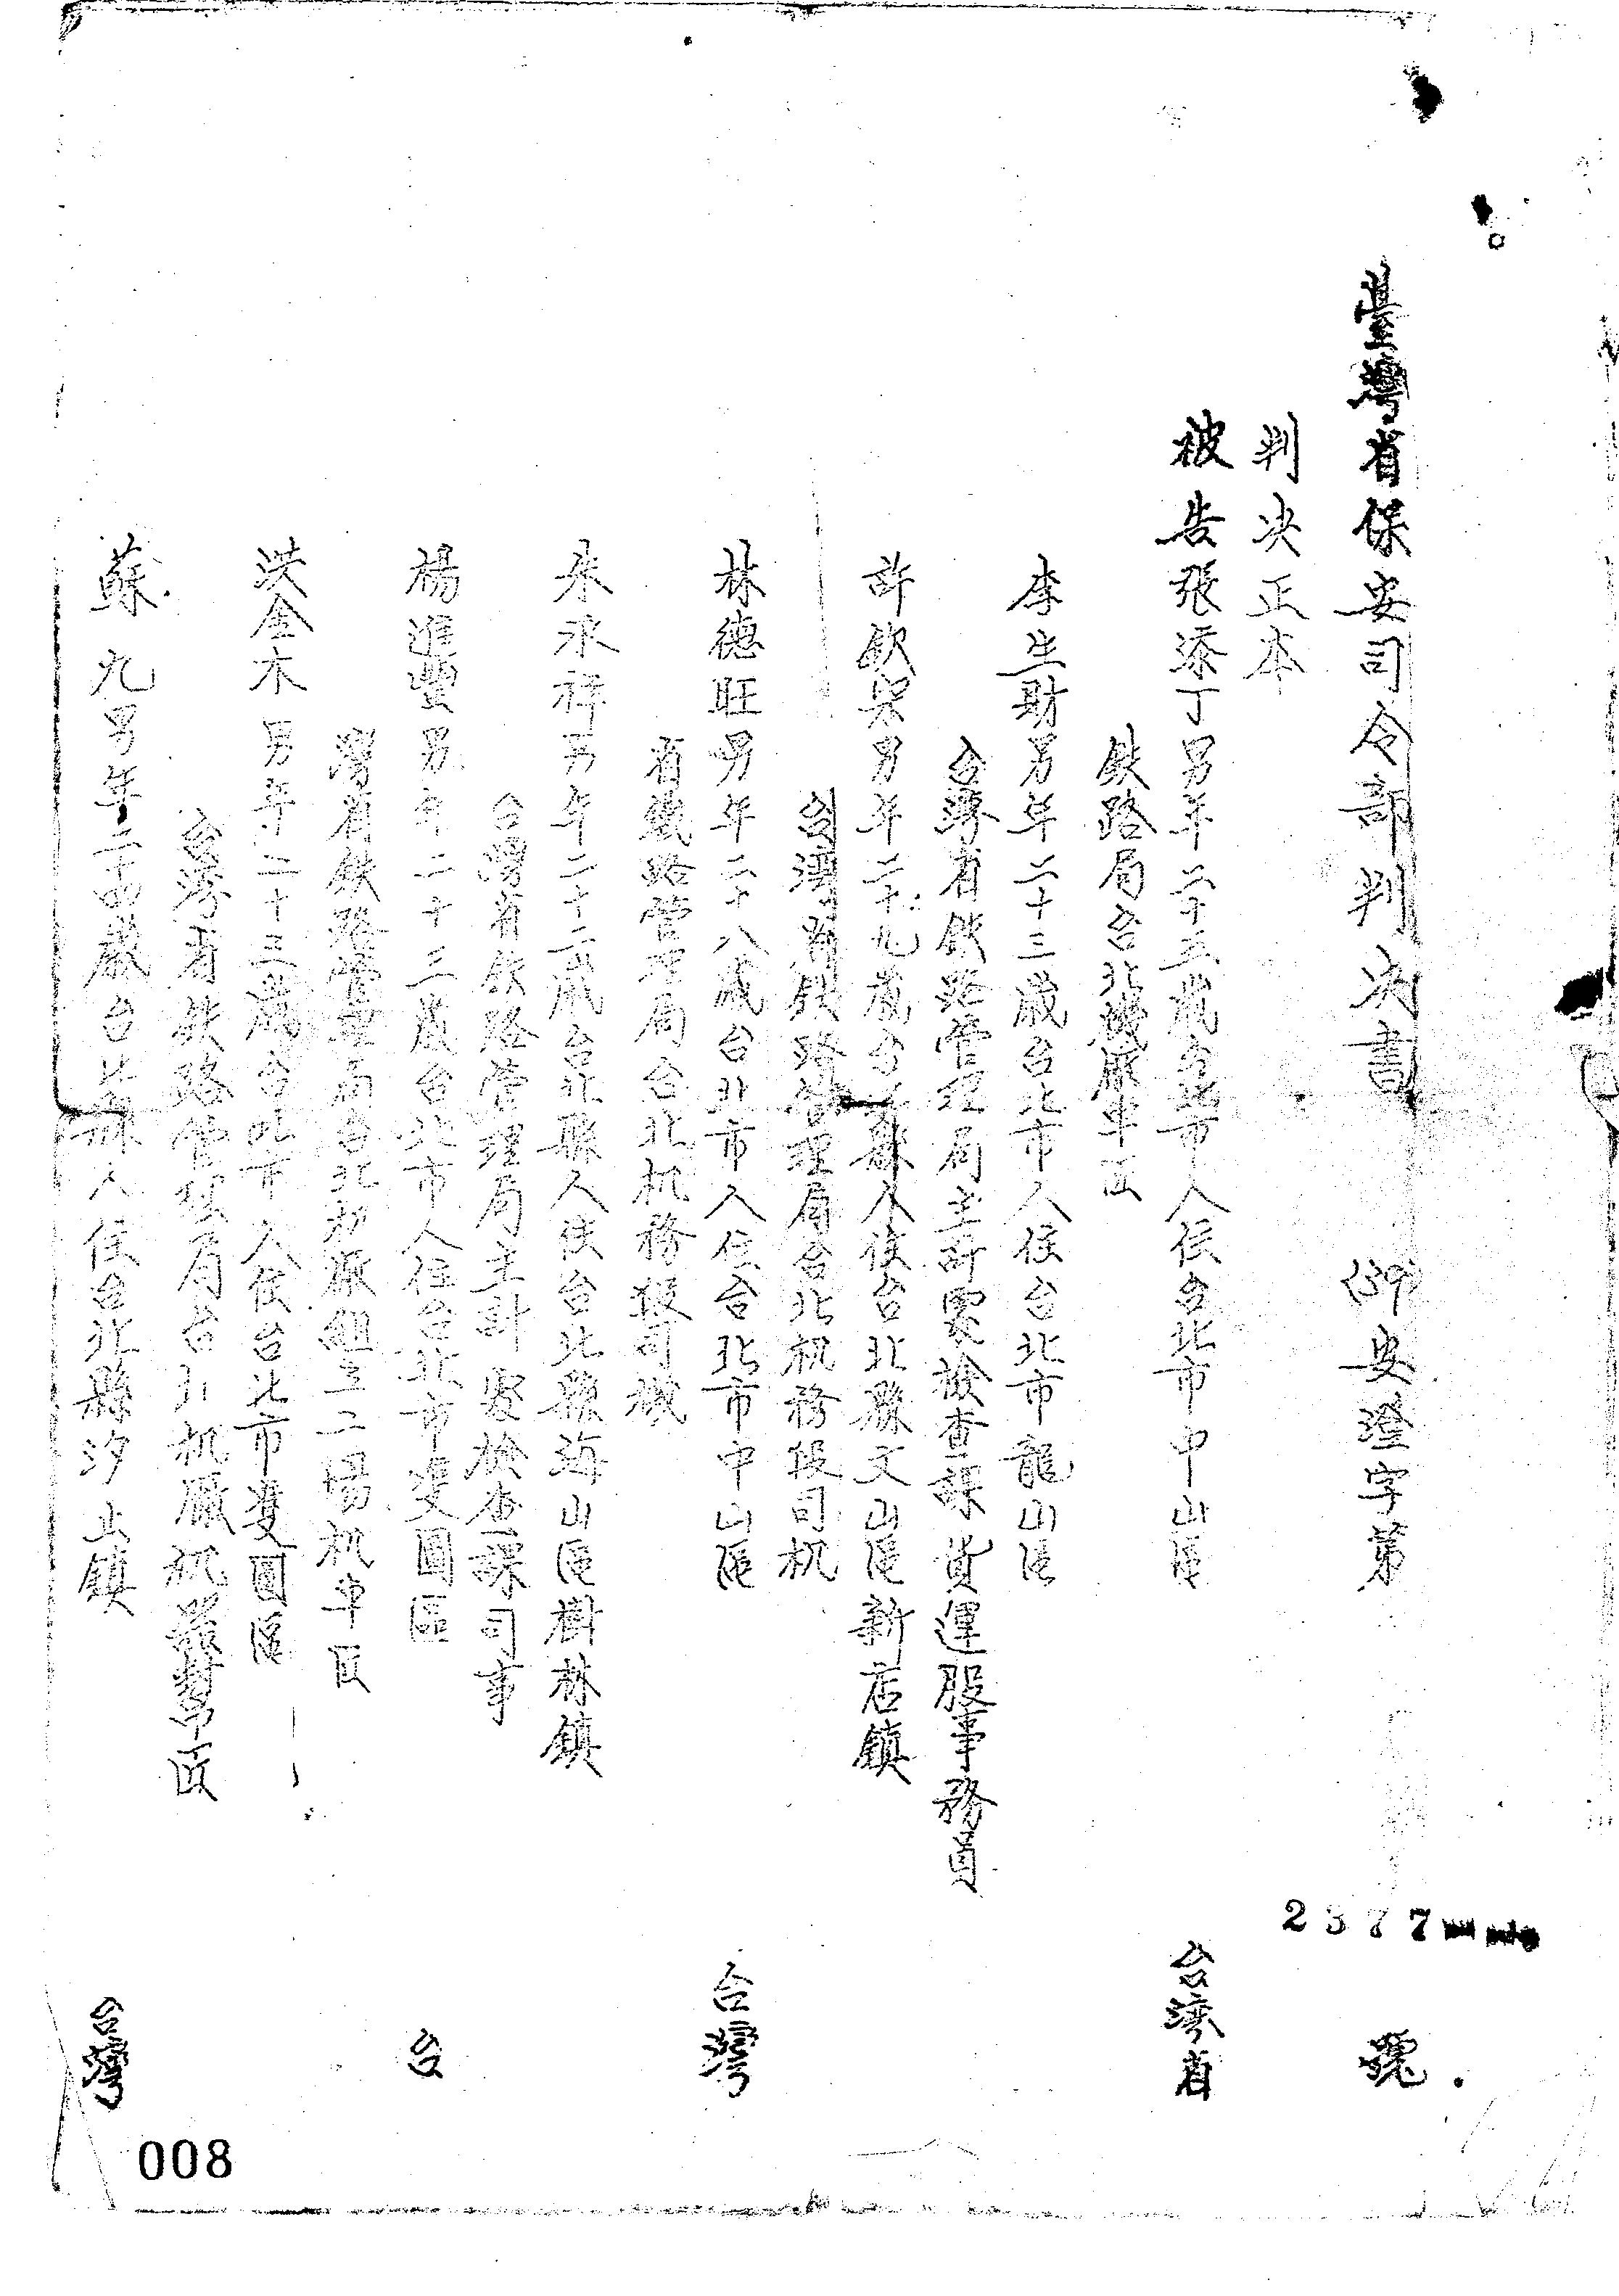 臺灣省保安司令部判決書 (39)安澄字第2377號
判决正本
被告張添丁男年二十五歲台北市人住台北市中山區台湾省
鉄路局台北機厰車匠
李生財男年二十三歲台北市人住台北市龍山區
台湾省鉄路管理局主計處檢查課貨運股事務員
許欽宗男年二十九歲台北縣人住台北縣文山區新店鎮
台灣省鉄路管理局台北机務段司机
林德旺男年二十八歲台北市人住台北市中山區台灣
省鐵路管理局台北机務段司機
朱永祥男年二十二歲台北縣人住台北縣海山區樹林鎮
台灣省鉄路管理局主計處檢查課司事
楊進豐男年二十三歲台北市人住台北市雙園區台
灣省鉄路管理局台北机厰組立工場机車匠
洪金木男年二十三歲台北市人住台北市雙園區
台湾省鉄路管理局台北机厰机器幫匠
蘇九男年二十四歲台北縣人住台北縣汐止鎮台灣
008